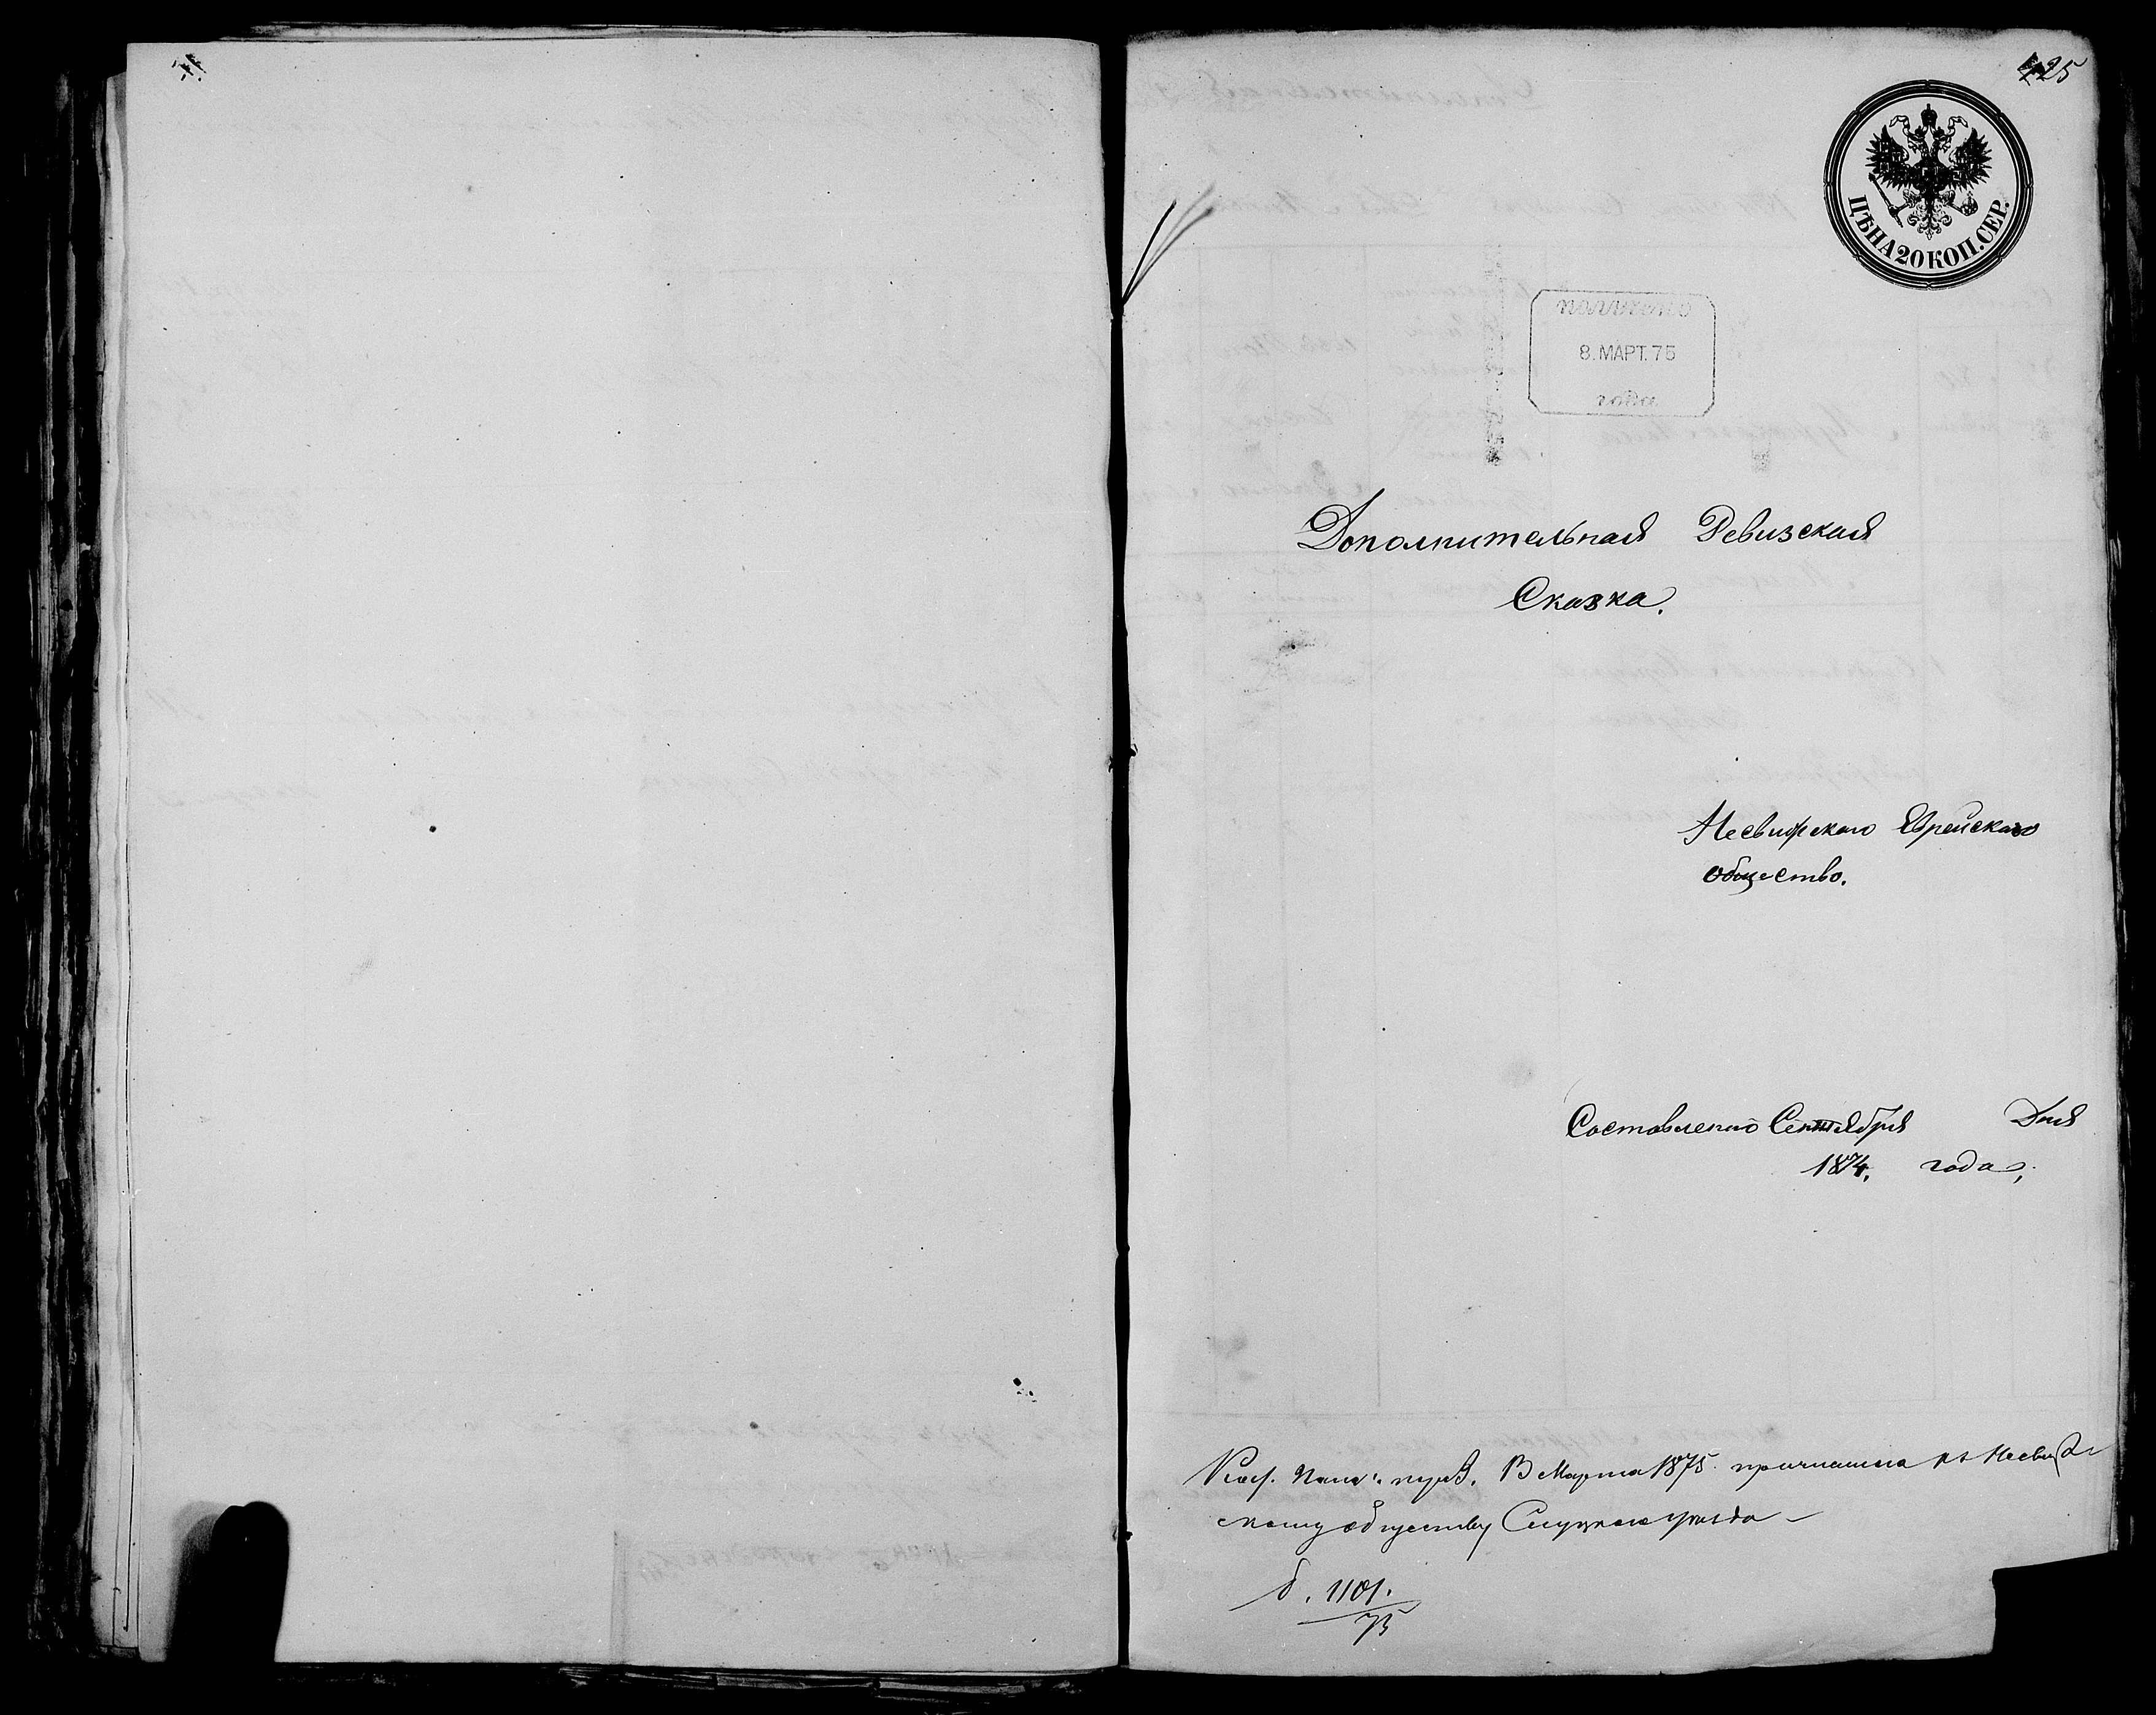 425
ЦѢНА 20 КОП. СЕР.
получено
8. МАРТ. 75
года
Дополнительная Ревизская
Сказка.
Несвижского Еврейского
общество.
Составлено Сентября Дня
1874. года,
В Марта 1875 причислена къ Несвиж
скому обществу Слуцкого уѣзда
б. 1101.
75